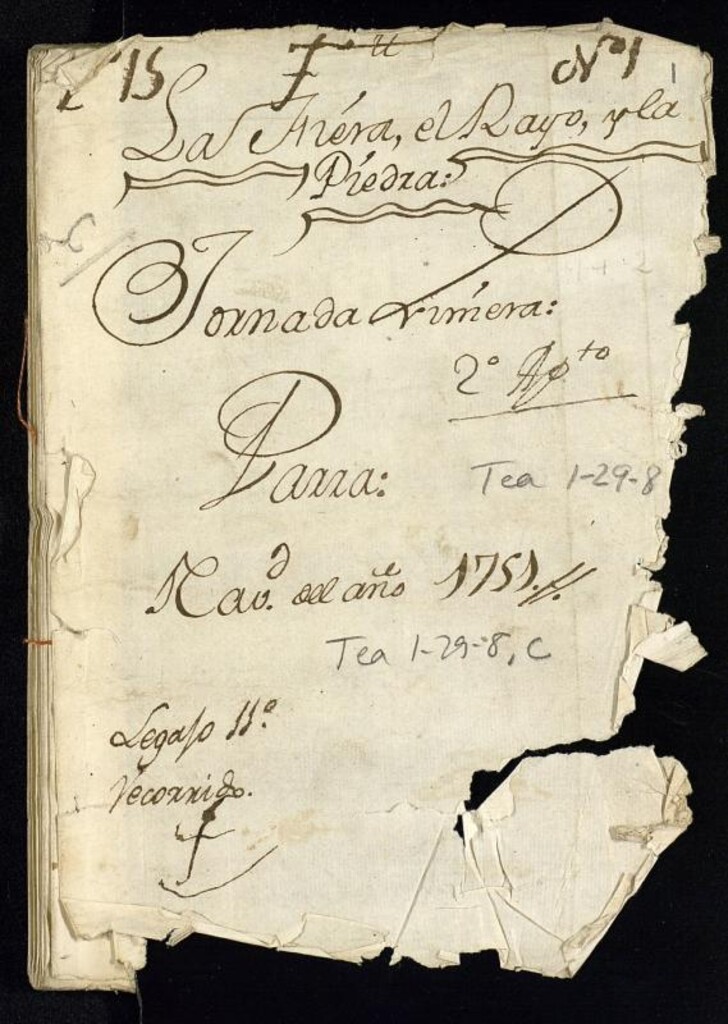 15 Nº 1 1
La Fiéra, el Rayo, y la
Piedra:
Jornada Primera:
2º Apto
Parra:
Tea 1-29-8
Navd. del año 1751.
Tea 1-29-8, C
Legajo 11º
Recorrido.